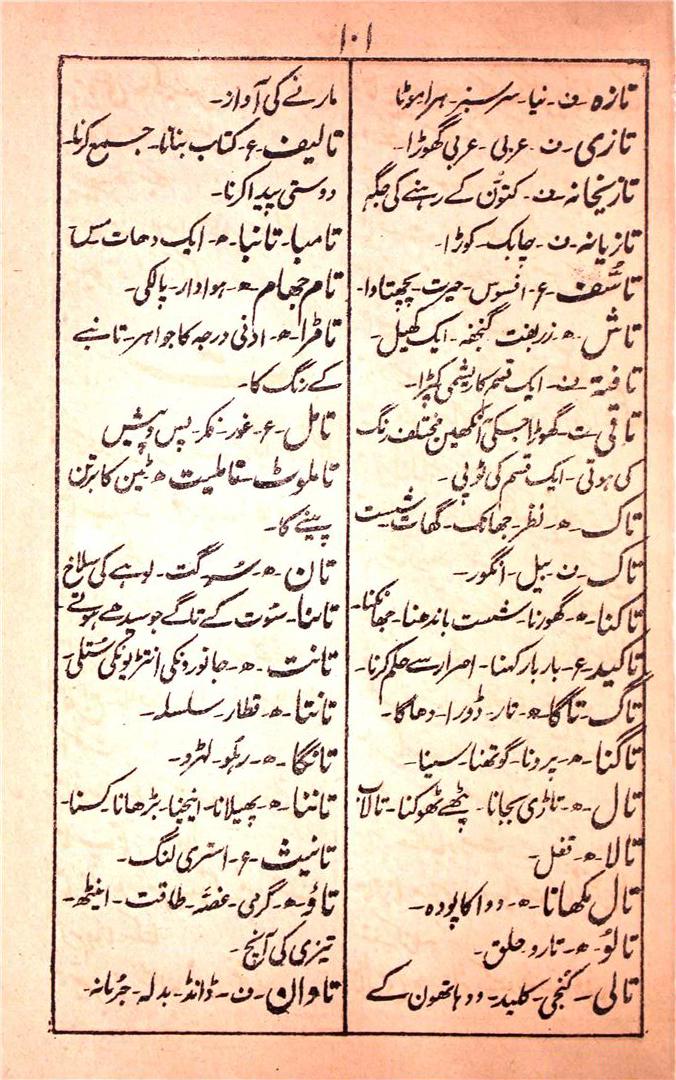 ۱۰۱
تازہ ۔ ف ۔ نیا ۔ سرسبز ۔ ہرا ہوٹا
تازی ۔ ف ۔ عربی ۔ عربی گھوڑا ۔
تازیخانہ ۔ ف ۔ کتوں کے رہنے کی جگہ
تازیانہ ۔ ف ۔ چابک ۔ کوڑا ۔
تاسُّف ۔ ع ۔ افسوس ۔ حیرت ۔ پچھتاوا ۔
تاش ۔ ھ ۔ زربفت گنجفہ ۔ ایک کھیل ۔
تافتہ ۔ ف ۔ ایک قسم کا ریشمی کپڑا ۔
تاقی ۔ ت ۔ گھوڑا جسکی آنکھین مختلف رنگ
کی ہوتی ۔ ایک قسم کی ٹوپی ۔
تاک ۔ ھ ۔ نظر ۔ جھانک ۔ گھات شست
تاک ۔ ف ۔ بیل ۔ انگور ۔
تاکنا ۔ ھ ۔ گھورنا ۔ شست باندھنا ۔ جھانکنا ۔
تاکید ۔ ع ۔ بار بار کہنا ۔ اصرار سے حکم کرنا ۔
تاگ ۔ تاگا ۔ ھ ۔ تار ۔ ڈورا ۔ دھاگا ۔
تاگنا ۔ ھ ۔ پرونا ۔ گوتھنا ۔ سینا ۔
تال ۔ ھ ۔ تاڑی بجانا ۔ پٹھے ٹھوکنا ۔ تالاب
تالا ۔ ھ ۔ قفل ۔
تال مکھانا ۔ ھ ۔ دوا کا پودہ ۔
تالُو ۔ ھ ۔ تارو حلق ۔
تالی ۔ کُنجی ۔ کلید ۔ دو ہاتھون کے
مارنے کی آواز ۔
تالیف ۔ ع ۔ کتاب بنانا ۔ جمع کرنا ۔
دوستی پیدا کرنا ۔
تامبا ۔ تانبا ۔ ھ ۔ ایک دھات مس
تام جھام ۔ ھ ۔ ہوادار ۔ پالکی ۔
تامڑا ۔ ھ ۔ ادنی درجہ کا جواہر ۔ تانبے
کے رنگ کا ۔
تامل ۔ ع ۔ غور ۔ فکر ۔ پس و پیش
تاملوٹ ۔ تاملیٹ ۔ ھ ۔ ٹین کا برتن
پینے کا ۔
تان ۔ ھ ۔ سُر ۔ گت ۔ لوہے کی سلاخ
تانا ۔ سُوت کے تاگے جو سیدھے ہوتے
تانت ۔ ھ ۔ جانورونکی انتڑیونکی سُتلی ۔
تانتا ۔ ھ ۔ قطار ۔ سلسلہ ۔
تانگا ۔ ھ ۔ رہکو ۔ لہڑو ۔
تاننا ۔ ھ ۔ پھیلانا ۔ اینچنا ۔ بڑھانا ۔ کسنا ۔
تانیث ۔ ع ۔ استری لنگ ۔
تاؤ ۔ ھ ۔ گرمی ۔ غصّہ ۔ طاقت ۔ اینٹھ ۔
تیزی کی آنچ ۔
تاوان ۔ ف ۔ ڈانڈ ۔ بدلہ ۔ جرمانہ ۔